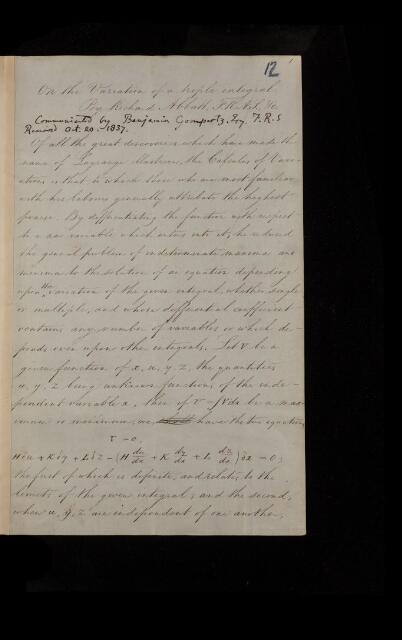 12
On the Variation of a triple integral.
By Richard Abbatt, F.R.A.S. &c.
Communicated by Benjamin Gompertz, Esq. F.R.S
Received Oct. 20. 1837.
Of all the great discoveries which have made the
name of Lagrange illustrious, the Calculus of Vari-
ations, is that to which those who are most familiar
with his labours generally attribute the highest
praise. By differentiating the function with respect
to a new variable which enters into it, he reduced
the general problem of indeterminate maxima and
minima to the solution of an equation depending
upon the variation of the given integral, whether single
or multiple, and whose differential coefficient
contains any number of variables or which de-
pends even upon other integrals. Let V be a
given function of x, u, y, z, the quantities
u, y, z being unknown functions of the inde-
pendent variable x, then if U = ∫V dx be a max-
imum or minimum, we have the two equations,
Γ = 0,
Hδu + Kδy + Lδz − (H du/dx + K dy/dx + L dz/dx) δx = 0;
the first of which is definite, and relates to the
limits of the given integral; and the second,
when u, y, z are independent of one another,